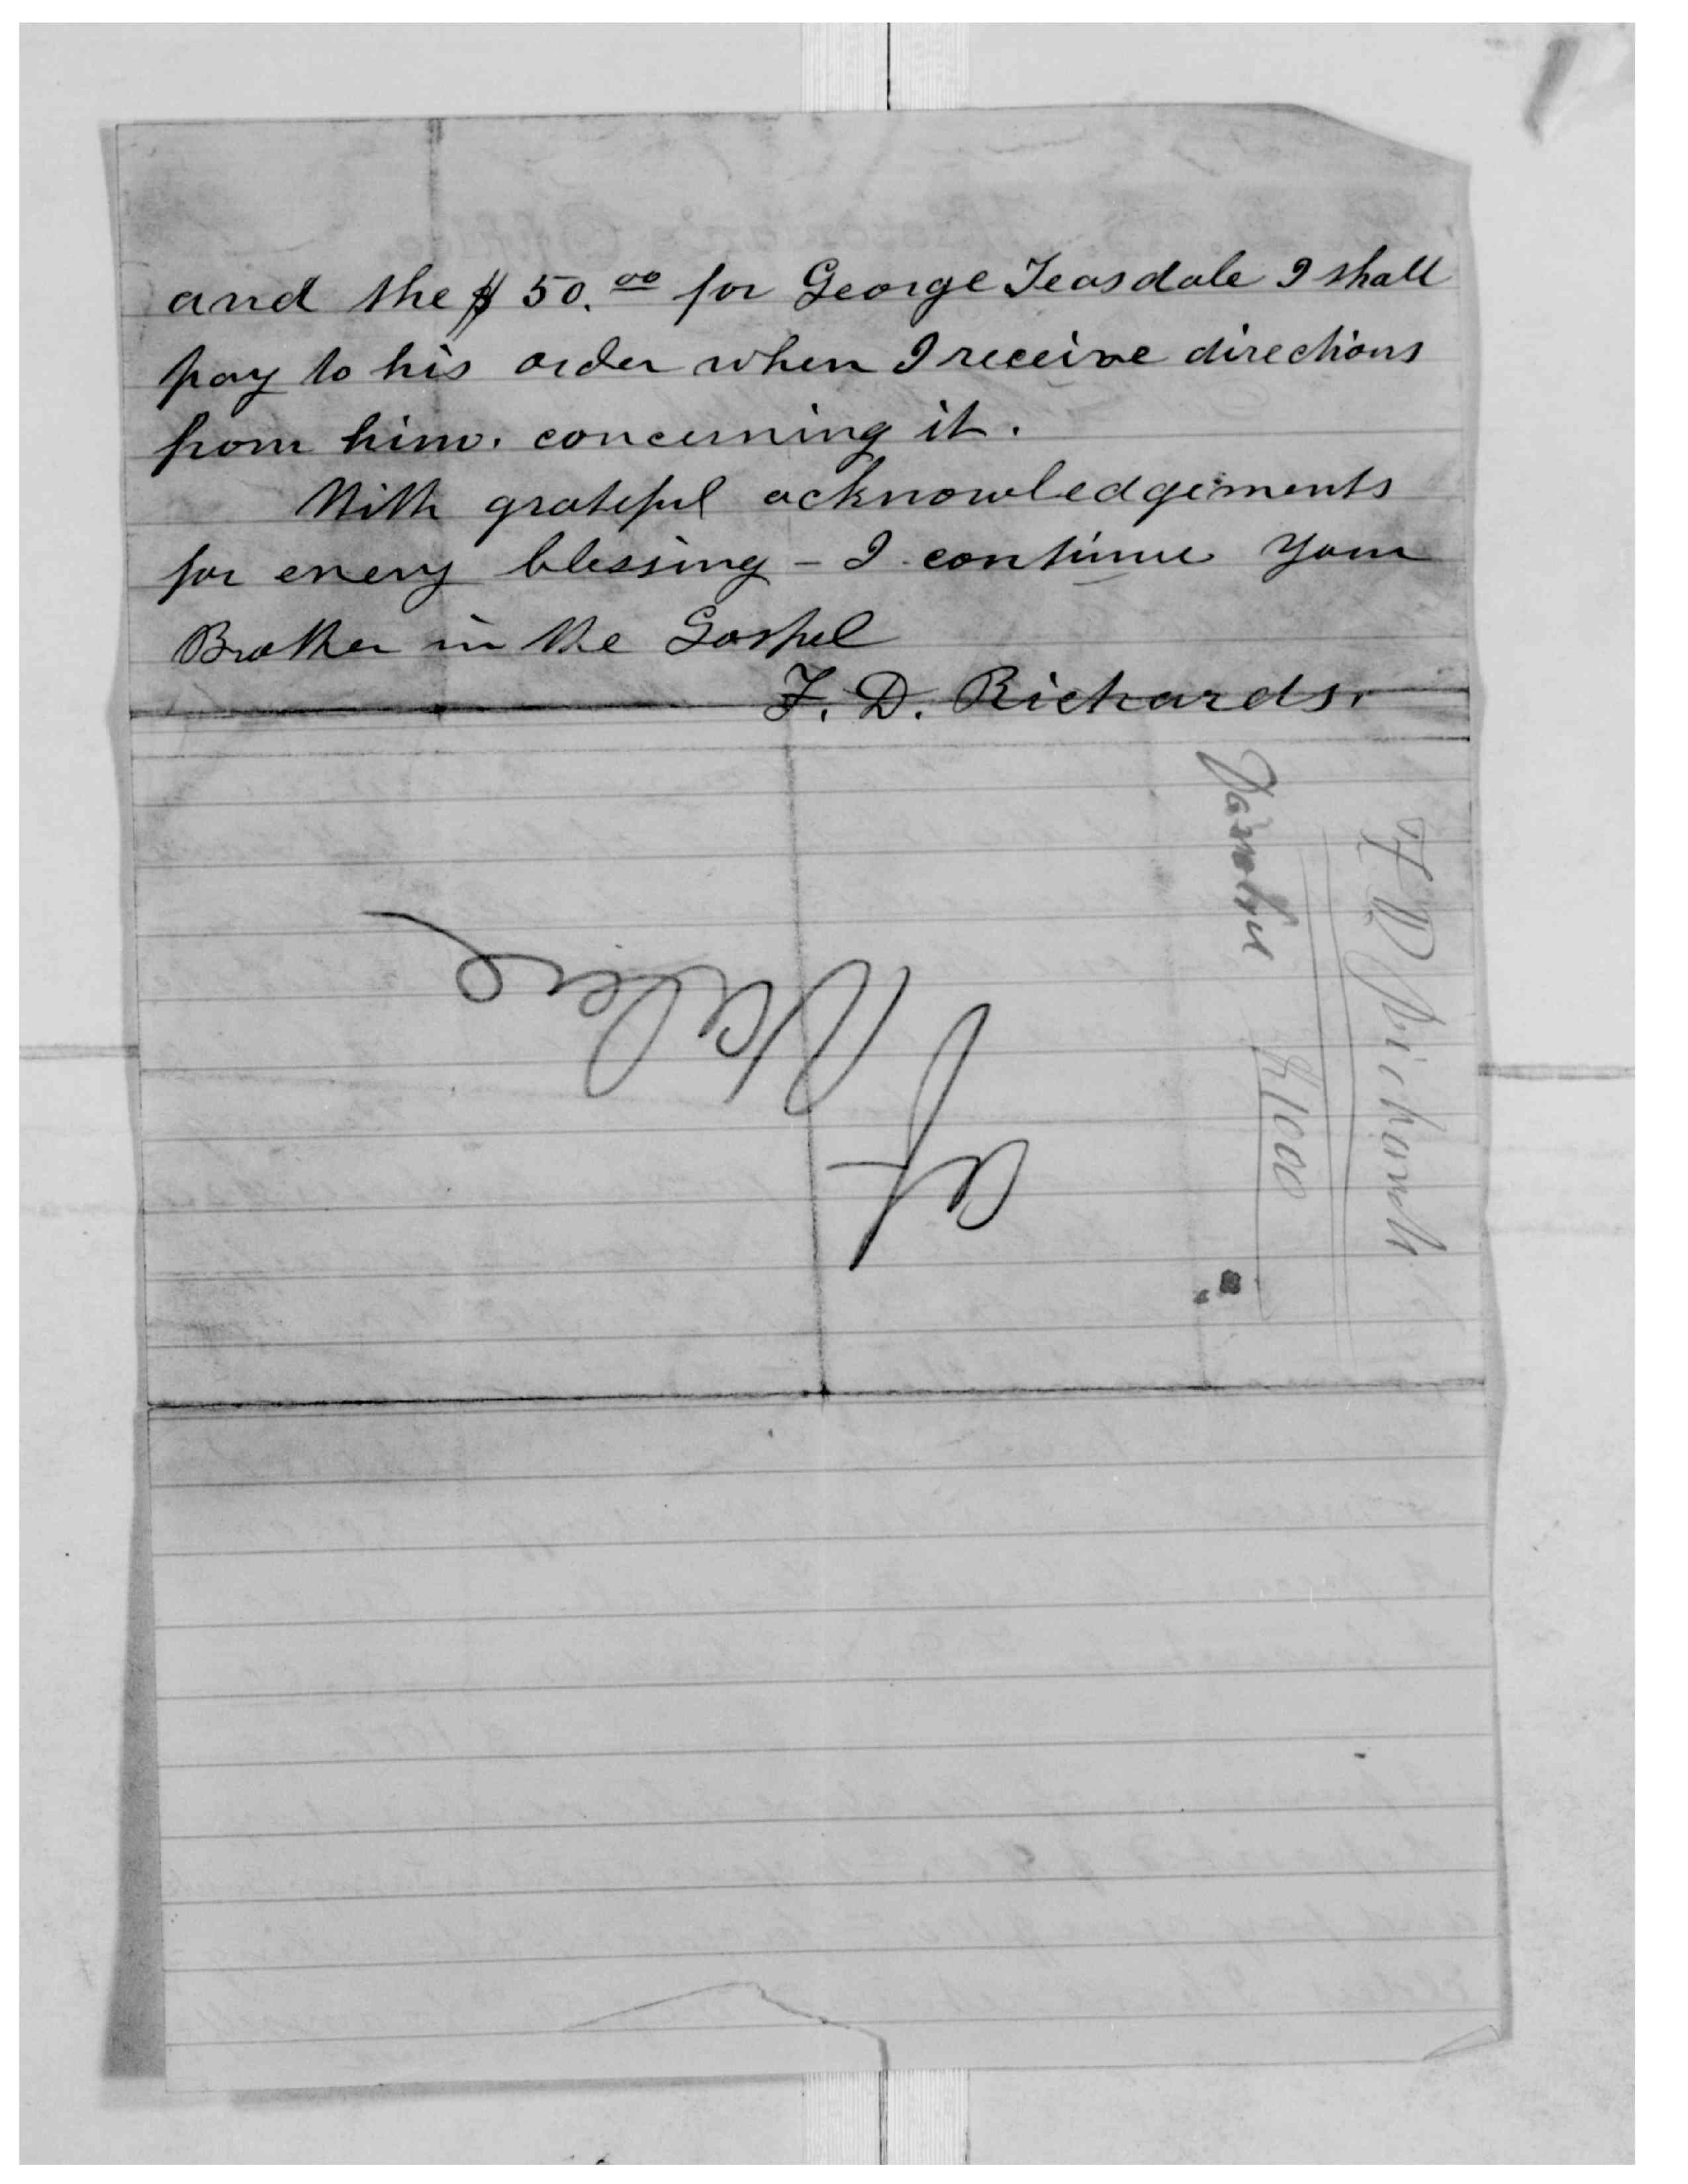 and the $50.00 for George Teasdale I shall
pay to his order when I receive directions
from him. concerning it.
With grateful acknowledgements
for every blessing - I continue Your
Brother in the Gospel
F. D. Richards.
F D Richards
$1000